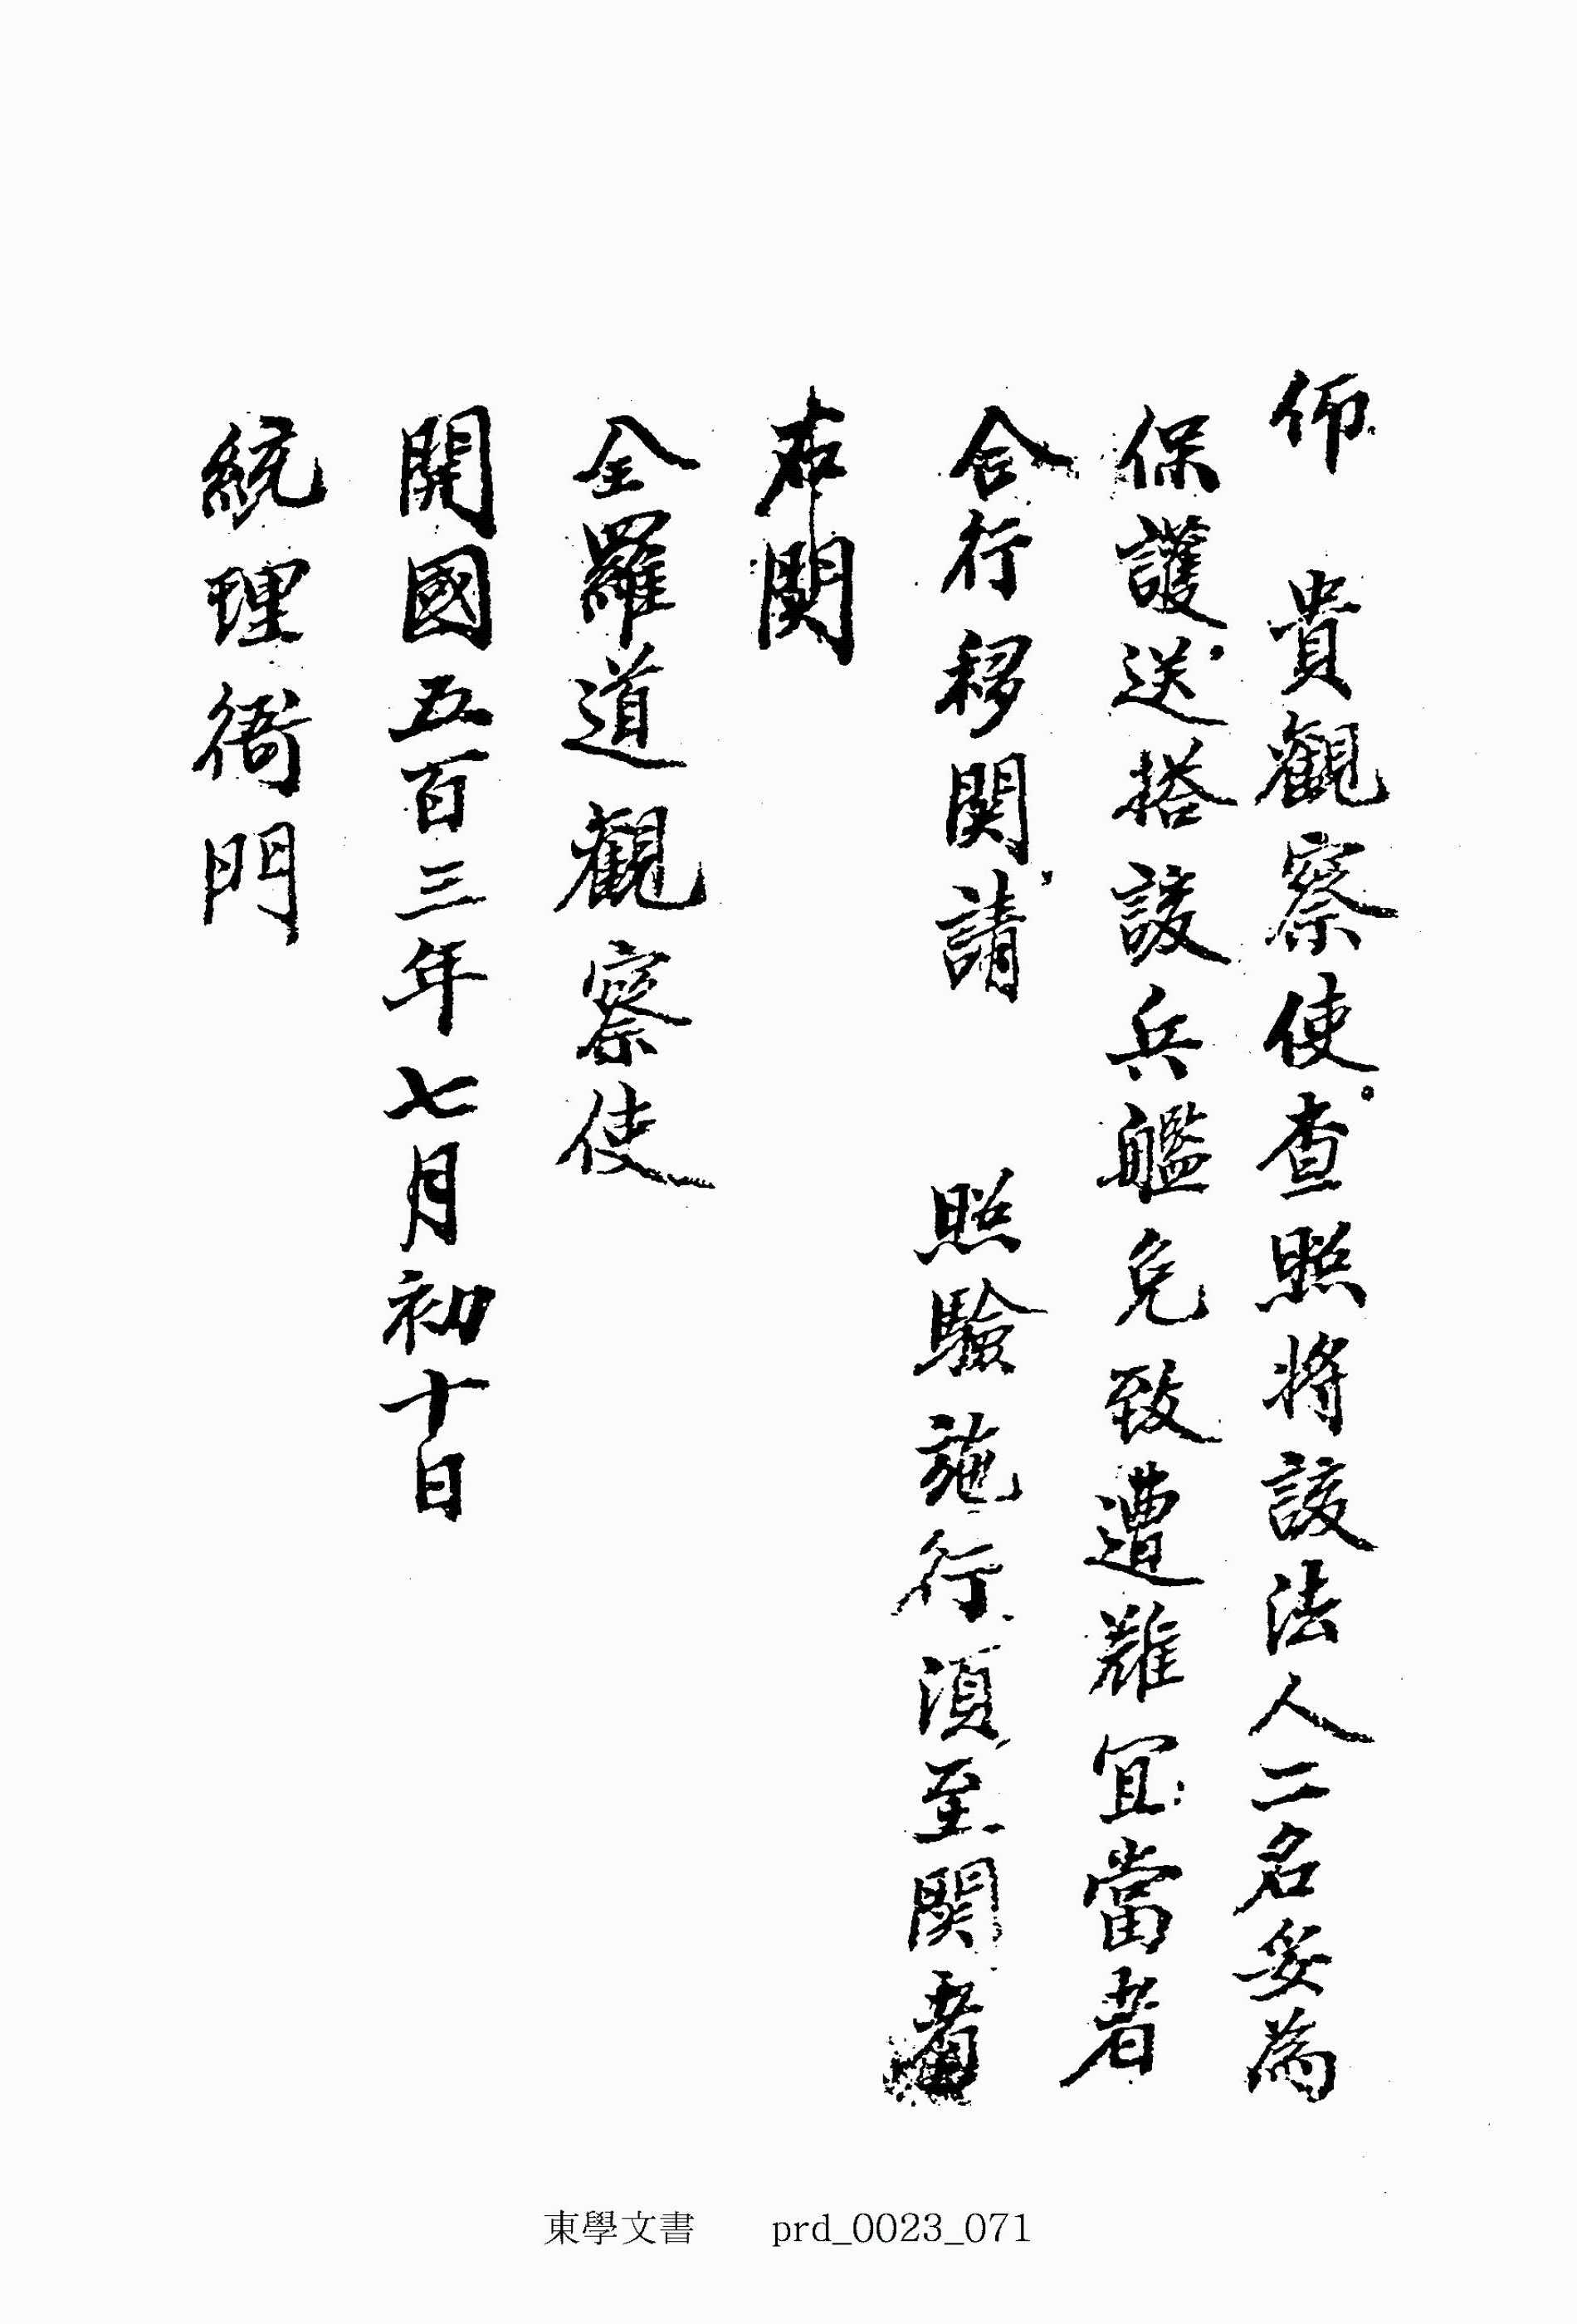 仰 貴觀察使查照將該法人二名妥爲
保護送搭該兵艦免致遭難宜當者
合行移関請 照驗施行須至関者
右関
全羅道觀察使
開國五百三年七月初十日
統理衙門
東學文書 prd_0023_071